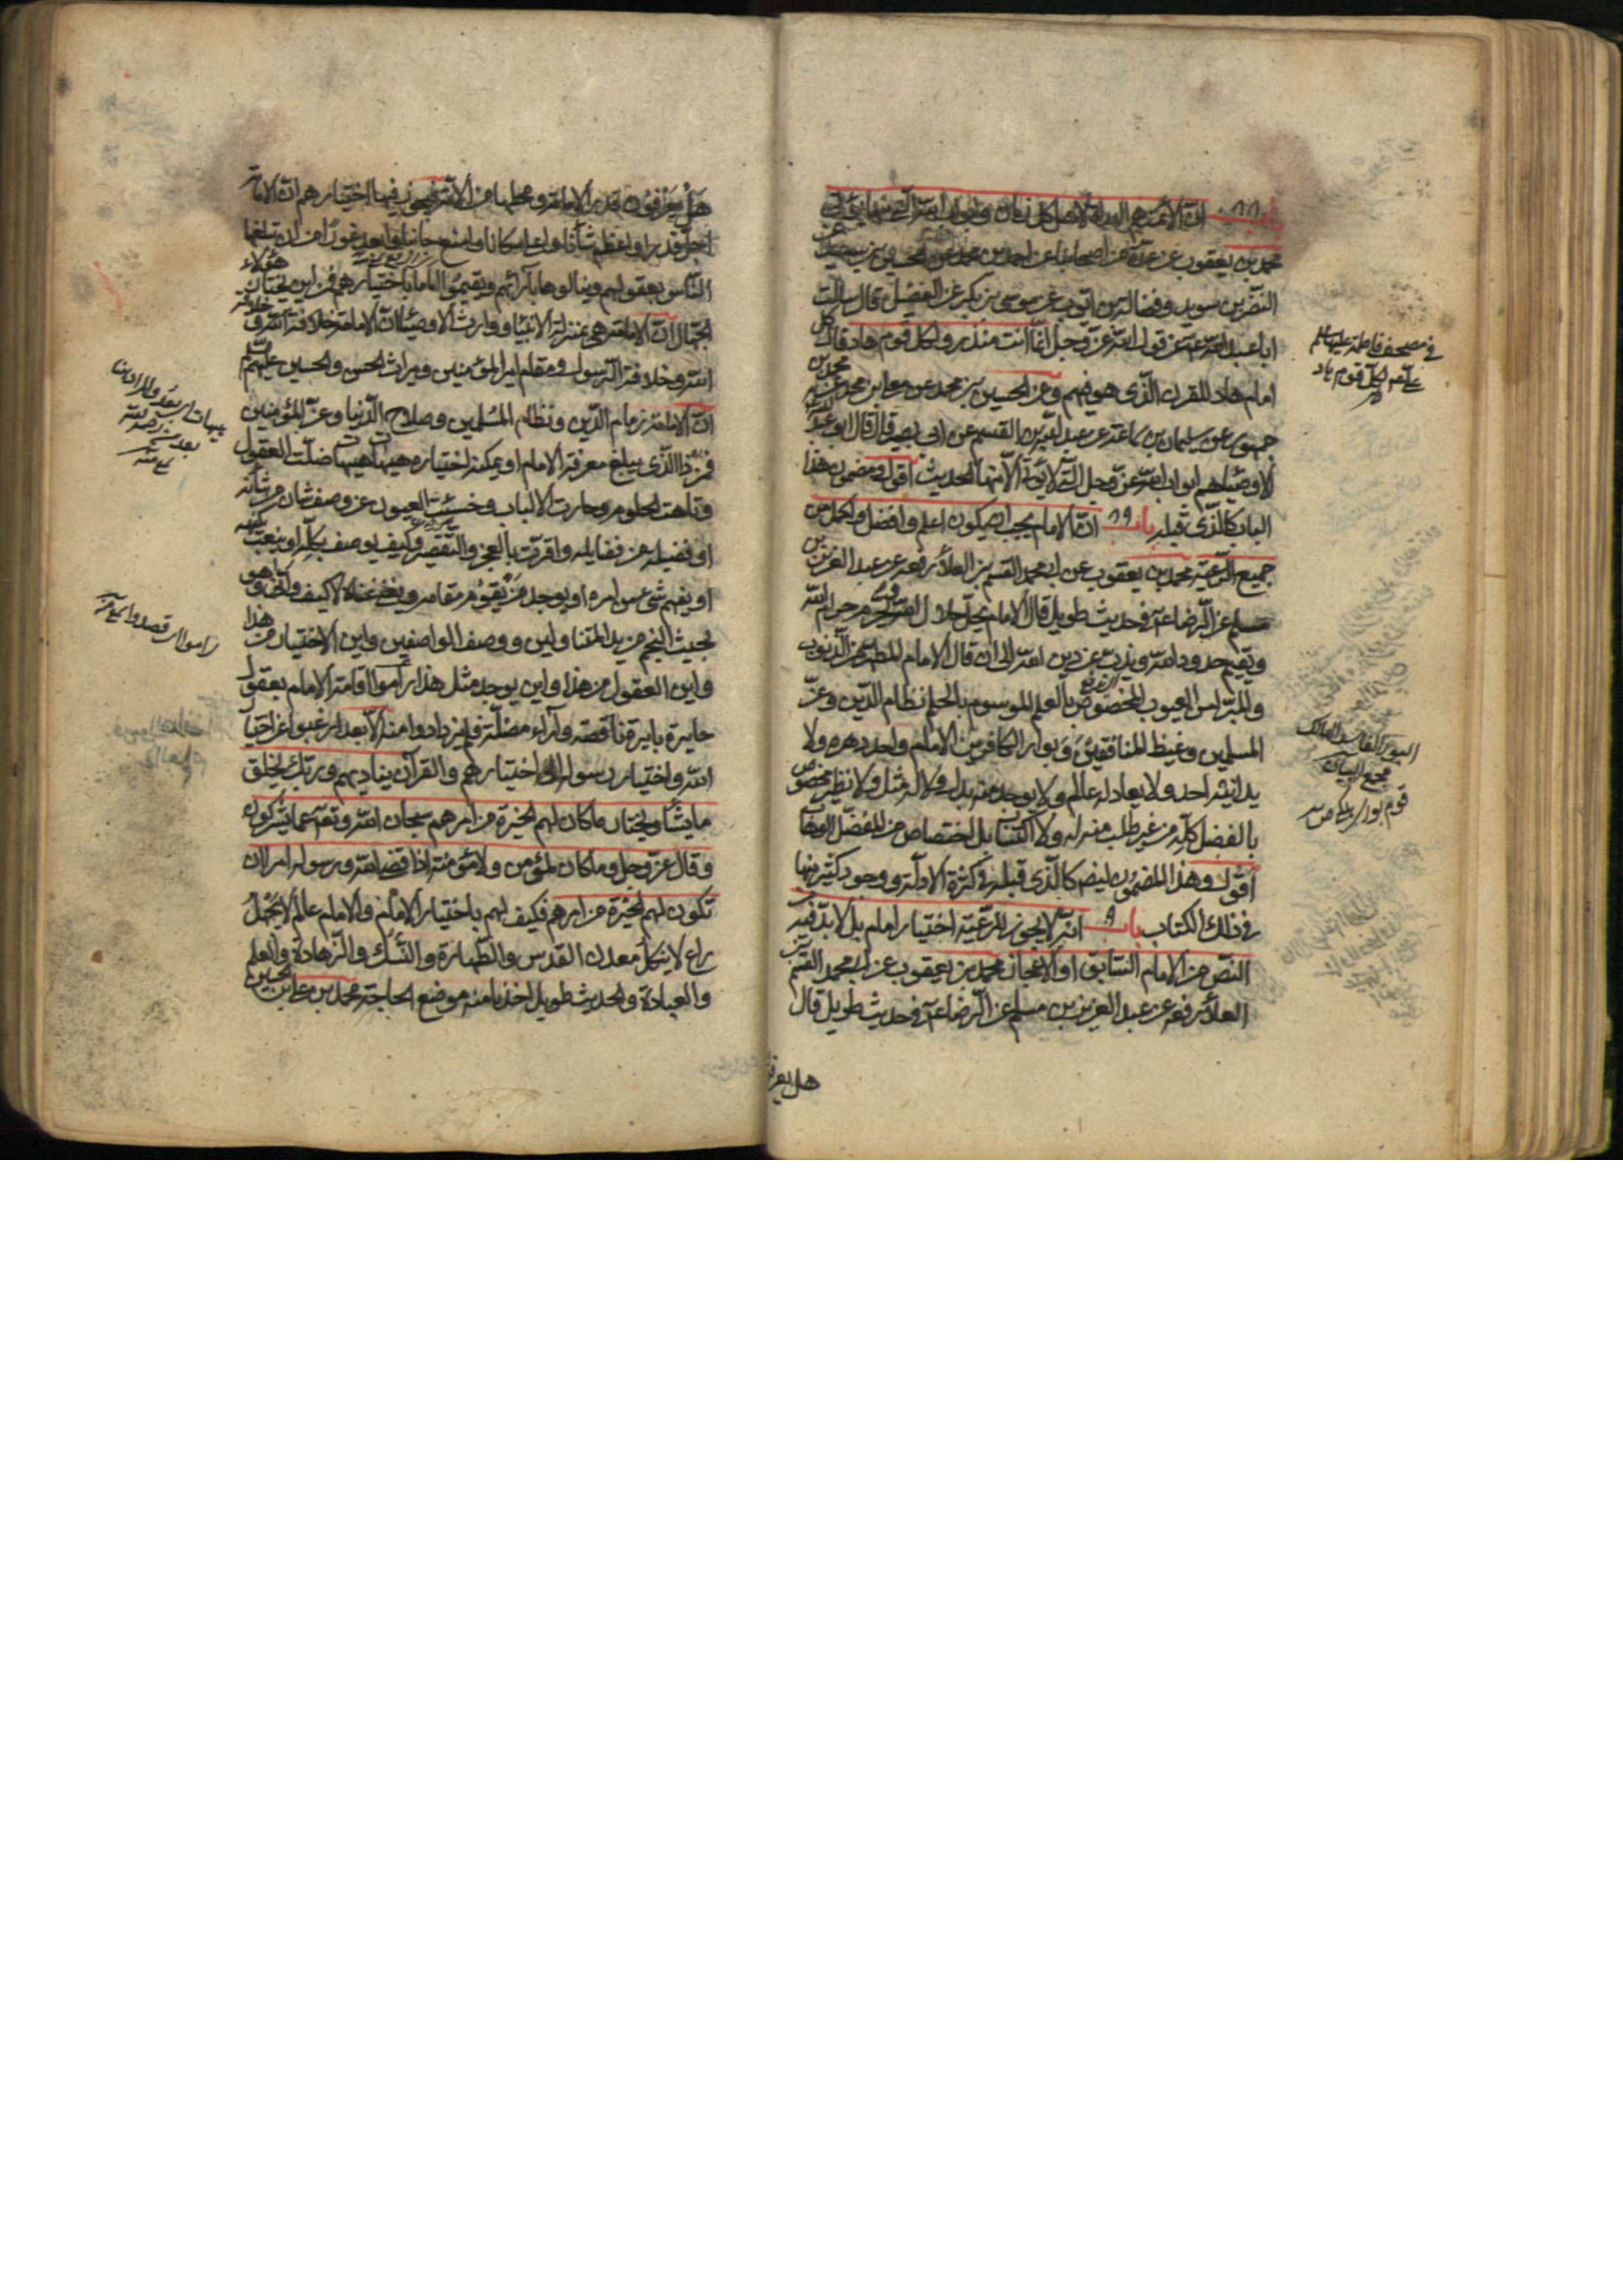 باب ٨٨ ان الائمة هم الهداة لاهل كل زمان وابواب الله التي منها يؤتى
محمد بن يعقوب عن عدة من اصحابنا عن احمد بن محمد عن الحسين بن سعيد عن
النضر بن سويد وفضالة بن ايوب عن موسى بن بكر عن الفضيل قال سالت
ابا عبد الله ع عن قول الله عز وجل انما انت منذر ولكل قوم هاد فقال كل
امام هاد للقرن الذي هو فيهم وعن الحسين بن محمد عن معلى بن محمد عن محمد بن
جمهور عن سليمان بن سماعة عن عبد الله بن القسم عن ابي بصير قال قال ابو عبد الله
الاوصياء هم ابواب الله عز وجل التي يؤتى منها الحديث اقول ومضمون هذا
الباب كالذي قبله باب ٨٩ ان الامام يجب ان يكون اعلم وافضل واكمل من
جميع الرعية محمد بن يعقوب عن ابي محمد القسم بن العلاء رفعه عن عبد العزيز بن
مسلم عن الرضا ع في حديث طويل قال الامام يحل حلال الله ويحرم حرام الله
ويقيم حدود الله ويذب عن دين الله الى ان قال الامام المطهر من الذنوب
والمبرا من العيوب المخصوص بالعلم الموسوم بالحلم نظام الدين وعز
المسلمين وغيظ المنافقين وبوار الكافرين الامام واحد دهره ولا
يدانيه احد ولا يعادله عالم ولا يوجد منه بدل ولا له مثل ولا نظير مخصوص
بالفضل كله من غير طلب منه له ولا اكتساب بل اختصاص من المفضل الوهاب
اقول وهذا المضمون ايضا كالذي قبله في كثرة الادلة ووجود كثير منها
في ذلك الكتاب باب ٩ انه لا يجوز للرعية اختيار امام بل لا بد فيه
النص من الامام السابق او الاعجاز محمد بن يعقوب عن ابي محمد القسم بن
العلاء رفعه عن عبد العزيز بن مسلم عن الرضا ع في حديث طويل قال
هل يعرفو
في مصحف فاطمة عليها السلام
البوار الفاسد الهالك
مجمع البيان
هل يعرفون قدر الامامة ومحلها من الامة فيجوز فيها اختيارهم ان الامامة
اجل قدرا واعظم شانا واعلى مكانا وامنع جانبا وابعد غورا من ان تبلغها
الناس بعقولهم وينالوها بآرائهم ويقيموا اماما باختيارهم فمن اين يختار هؤلاء
الجهال ان الامامة هي منزلة الانبياء وارث الاوصياء ان الامامة خلافة
الله وخلافة الرسول ومقام امير المؤمنين وميراث الحسن والحسين عليهم
ان الامامة زمام الدين ونظام المسلمين وصلاح الدنيا وعز المؤمنين
فمن ذا الذي يبلغ معرفة الامام او يمكنه اختياره هيهات هيهات ضلت العقول
وتاهت الحلوم وحارت الالباب وخسئت العيون عن وصف شان من شانه
او فضيلة من فضايله واقرت بالعجز والتقصير وكيف يوصف بكله او ينعت بكنهه
او يفهم شئ من امره او يوجد من يقوم مقامه ويغني غناه لا كيف وانى وهو
بحيث النجم من يد المتناولين ووصف الواصفين واين الاختيار من هذا
واين العقول من هذا واين يوجد مثل هذا راموا اقامة الامام بعقول
حايرة بايرة ناقصة وآراء مضلة فلم يزدادوا منه الا بعدا رغبوا عن اختيار
الله واختيار رسوله الى اختيارهم والقرآن يناديهم وربك يخلق
ما يشاء ويختار ما كان لهم الخيرة من امرهم سبحان الله وتعالى عما يشركون
وقال عز وجل وما كان لمؤمن ولا مؤمنة اذا قضى الله ورسوله امرا ان
تكون لهم الخيرة من امرهم فكيف لهم باختيار الامام والامام عالم لا يجهل
راع لا ينكل معدن القدس والطهارة والنسك والزهادة والعلم
والعبادة والحديث طويل اخذنا منه موضع الحاجة محمد بن علي بن الحسين
راموا اي قصدوا